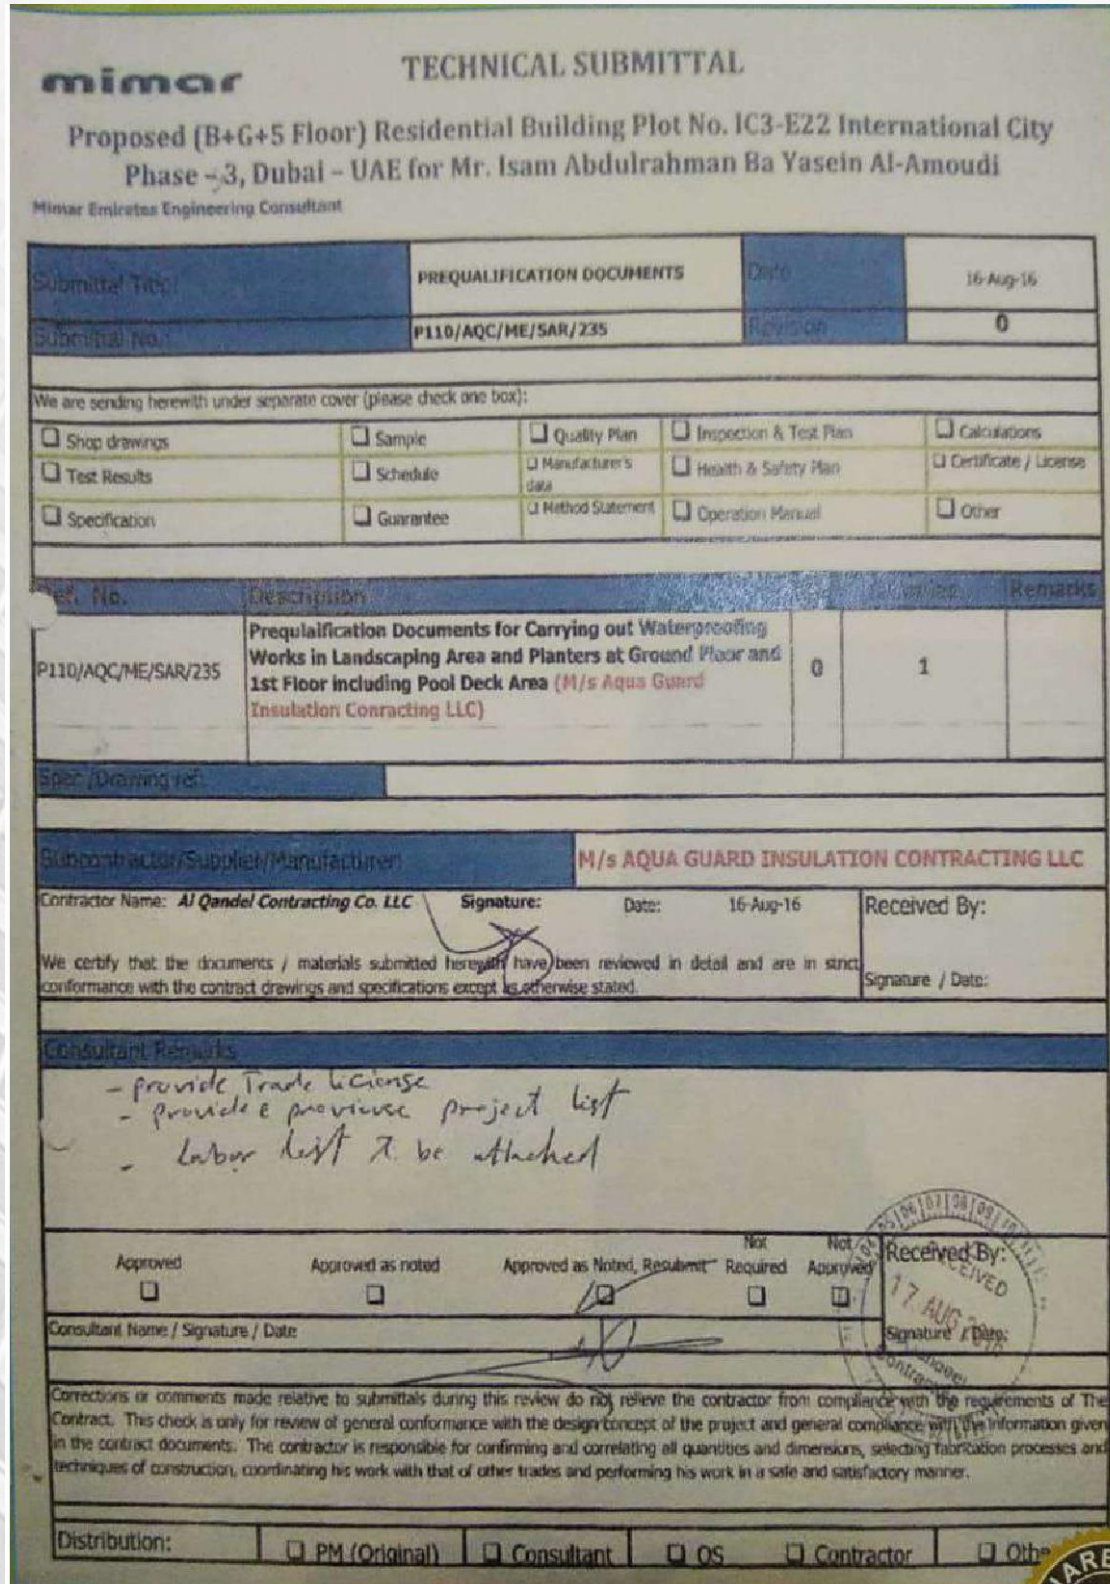 mimar
TECHNICAL SUBMITTAL
Proposed (B+G+5 Floor) Residential Building Plot No. IC3-E22 International City
Phase – 3, Dubai – UAE for Mr. Isam Abdulrahman Ba Yasein Al-Amoudi
Mimar Emirates Engineering Consultant
Submittal Title: PREQUALIFICATION DOCUMENTS Date 16-Aug-16
Submittal No.: P110/AQC/ME/SAR/235 Revision 0
We are sending herewith under separate cover (please check one box):
☐ Shop drawings ☐ Sample ☐ Quality Plan ☐ Inspection & Test Plan ☐ Calculations
☐ Test Results ☐ Schedule ☐ Manufacturer's data ☐ Health & Safety Plan ☐ Certificate / License
☐ Specification ☐ Guarantee ☐ Method Statement ☐ Operation Manual ☐ Other
Ref. No. Description Remarks
P110/AQC/ME/SAR/235 0 1
Prequlaification Documents for Carrying out Waterproofing
Works in Landscaping Area and Planters at Ground Floor and
1st Floor including Pool Deck Area (M/s Aqua Guard
Insulation Conracting LLC)
Spec /Drawing ref:
Subcontractor/Supplier/Manufacturer: M/s AQUA GUARD INSULATION CONTRACTING LLC
Contractor Name: Al Qandel Contracting Co. LLC Signature: Date: 16-Aug-16 Received By:
We certify that the documents / materials submitted herewith have been reviewed in detail and are in strict
conformance with the contract drawings and specifications except as otherwise stated. Signature / Date:
Consultant Remarks
- provide Trade
- project list
- Labor list to be attached
Approved Approved as noted Approved as Noted, Resubmit Not Required Not Approved Received By:
RECEIVED
17 AUG
Consultant Name / Signature / Date Signature / Date:
Corrections or comments made relative to submittals during this review do not relieve the contractor from compliance with the requirements of The
Contract. This check is only for review of general conformance with the design concept of the project and general compliance with the information given
in the contract documents. The contractor is responsible for confirming and correlating all quantities and dimensions, selecting fabrication processes and
techniques of construction, coordinating his work with that of other trades and performing his work in a safe and satisfactory manner.
Distribution: ☐ PM (Original) ☐ Consultant ☐ OS ☐ Contractor ☐ Othe